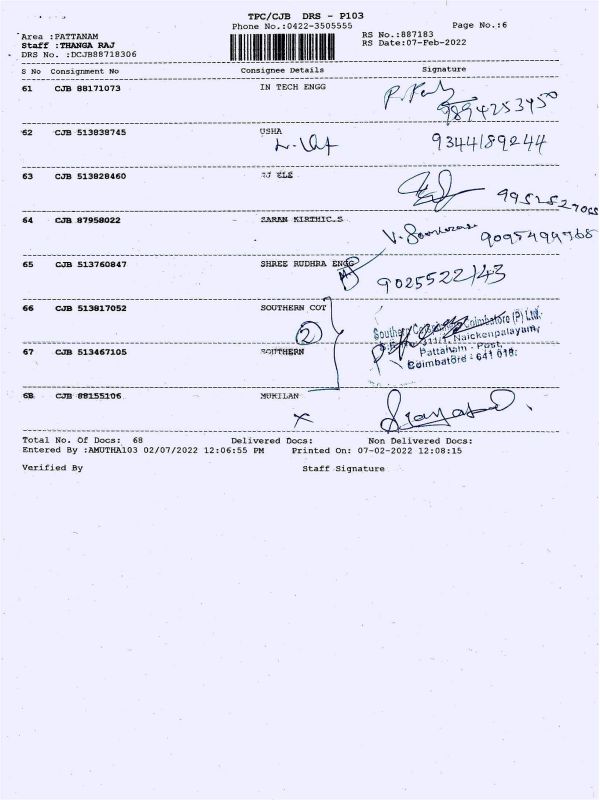 TPC/CJB DRS - P103
Phone No.:0422-3505555 Page No.:6
Area :PATTANAM RS No.:887183
Staff :THANGA RAJ RS Date:07-Feb-2022
DRS No. :DCJB88718306
S No Consignment No Consignee Details Signature
61 CJB 88171073 IN TECH ENGG
9894253450
62 CJB 513838745 USHA
9344189244
63 CJB 513828460 RJ ELE
9952527065
64 CJB 87958022 SARAN KIRTHIC.S
9095499768
65 CJB 513760847 SHREE RUDHRA ENGG
9025522143
66 CJB 513817052 SOUTHERN COT
2
Coimbatore (P) Ltd.
311/1, Naickenpalayam,
67 CJB 513467105 SOUTHERN
Pattanam - Post,
Coimbatore - 641 016.
68 CJB 88155106 MUKILAN
x
Total No. Of Docs: 68 Delivered Docs: Non Delivered Docs:
Entered By :AMUTHA103 02/07/2022 12:06:55 PM Printed On: 07-02-2022 12:08:15
Verified By Staff Signature